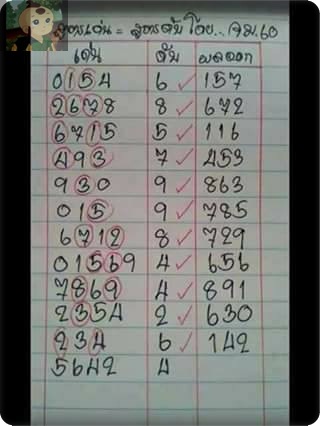 สูตรเด่น = สูตรดับ โดย..จม.60
เด่น ดับ ผลออก
0154 6 ✓ 157
2678 8 ✓ 672
6715 5 ✓ 116
493 7 ✓ 453
930 9 ✓ 863
015 9 ✓ 785
6712 8 ✓ 729
01569 4 ✓ 656
7869 4 ✓ 891
2354 2 ✓ 630
234 6 ✓ 142
5642 4